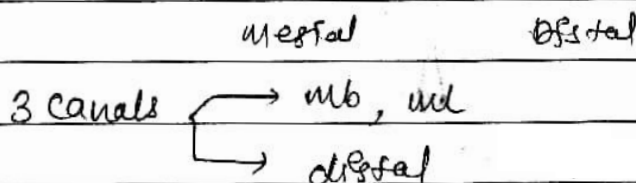 Mesial Distal
3 canals → mb, ml
→ distal